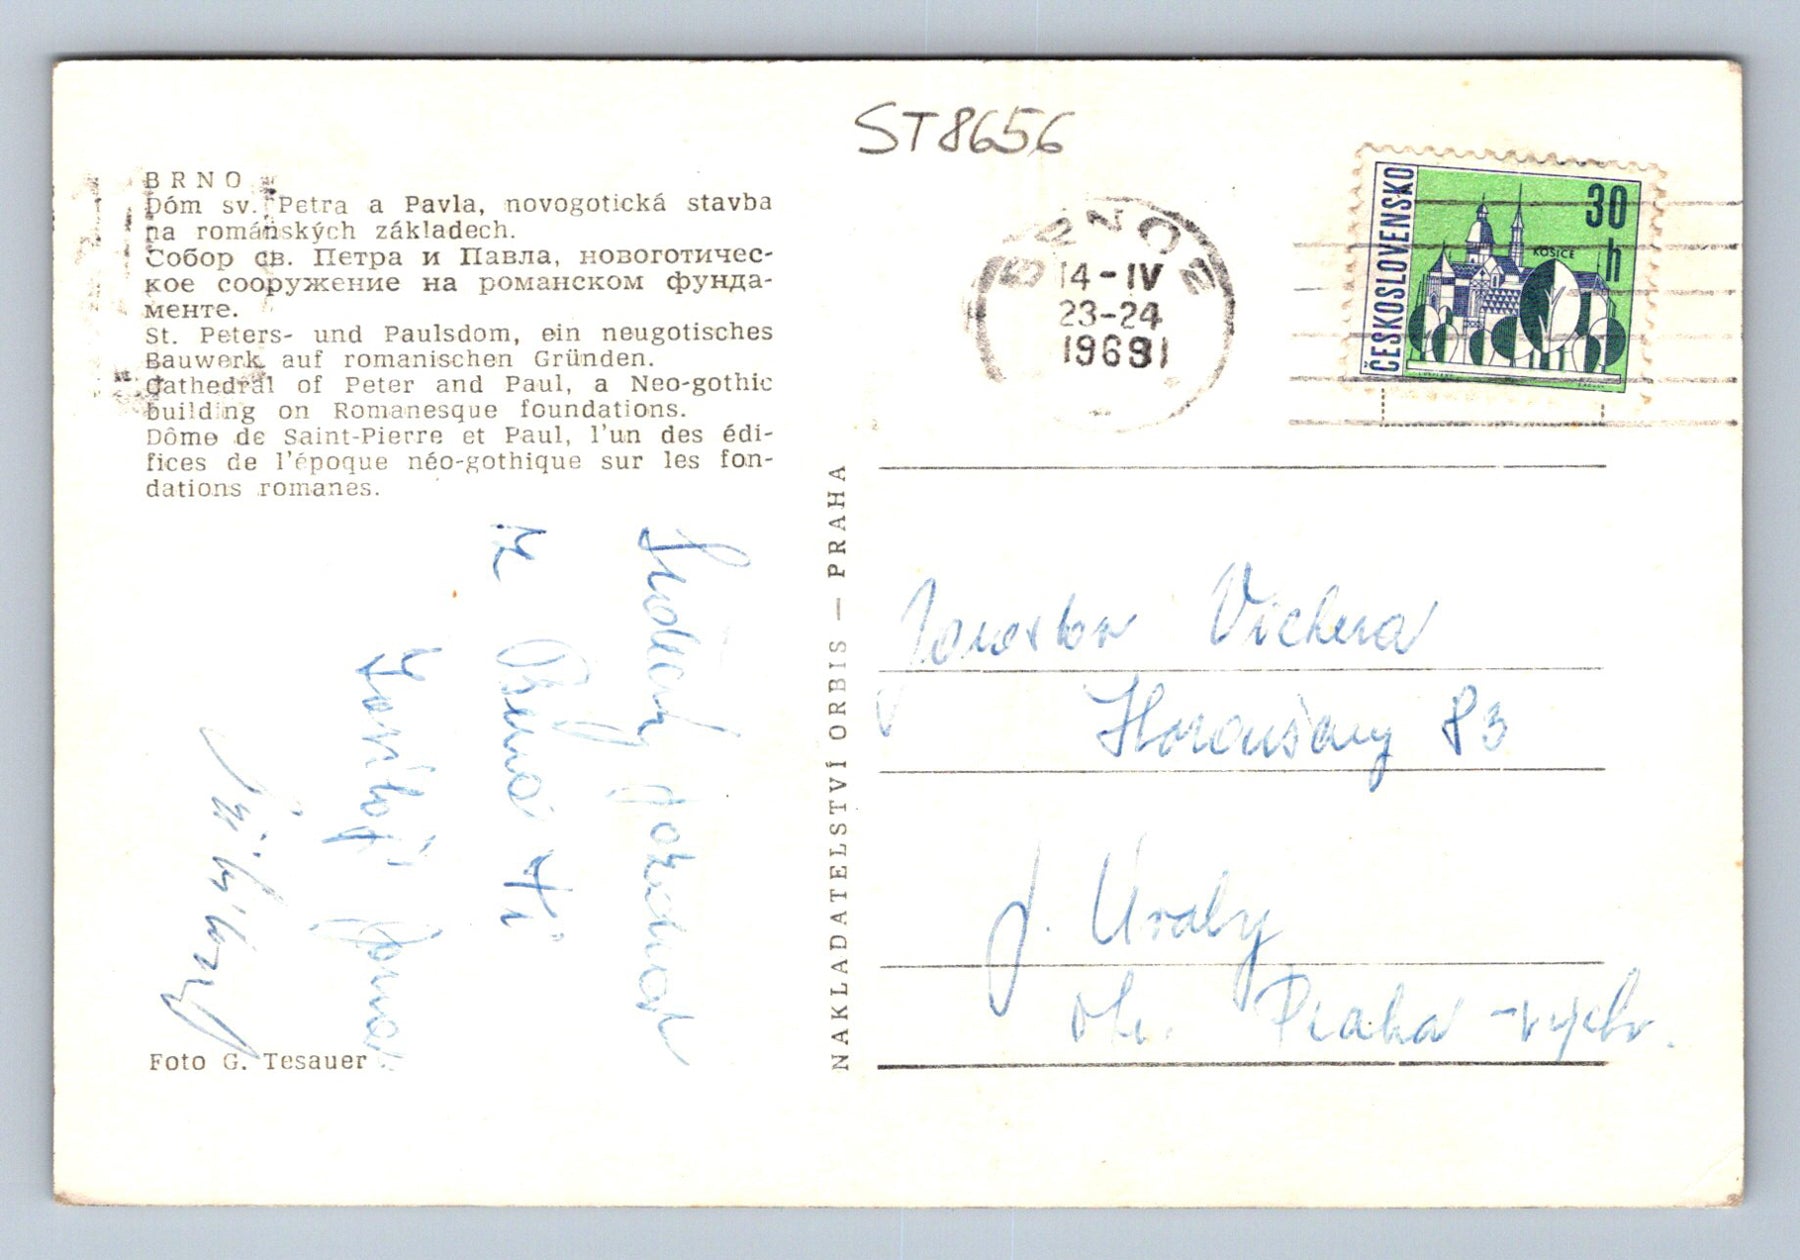 ST8656
BRNO
Dóm sv. Petra a Pavla, novogotická stavba
na románských základech.
Собор св. Петра и Павла, новоготичес-
кое сооружение на романском фунда-
менте.
St. Peters- und Paulsdom, ein neugotisches
Bauwerk auf romanischen Gründen.
Cathedral of Peter and Paul, a Neo-gothic
building on Romanesque foundations.
Dôme de Saint-Pierre et Paul, l'un des édi-
fices de l'époque néo-gothique sur les fon-
dations romanes.
Srdečný pozdrav
z Brna Ti
Foto G. Tesauer
NAKLADATELSTVÍ ORBIS — PRAHA
BRNO 2
14-IV
23-24
1969
ČESKOSLOVENSKO
30
h
KOŠICE
Jaroslav Vichera
Horoušany 83
p. Úvaly
okr. Praha - vých.